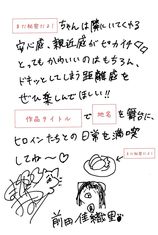 まだ秘密だよ！ちゃんは隣にいてくれる
安心感、親近感がピカイチ♡♡
とってもかわいいのはもちろん、
ドキッとしてしまう距離感を
ぜひ楽しんでほしい!!
作品タイトル で 地名 を舞台に、
ヒロインたちとの日常を満喫
してね〜♡
まだ秘密だよ！
前田佳織里